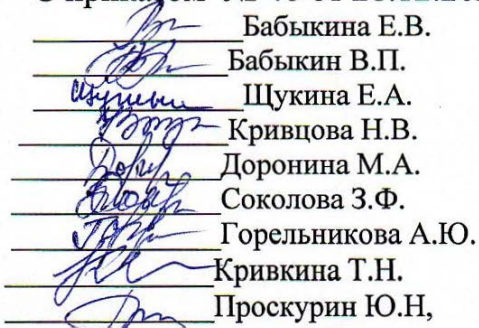 Бабыкина Е.В.
Бабыкин В.П.
Щукина Е.А.
Кривцова Н.В.
Доронина М.А.
Соколова З.Ф.
Горельникова А.Ю.
Кривкина Т.Н.
Проскурин Ю.Н,